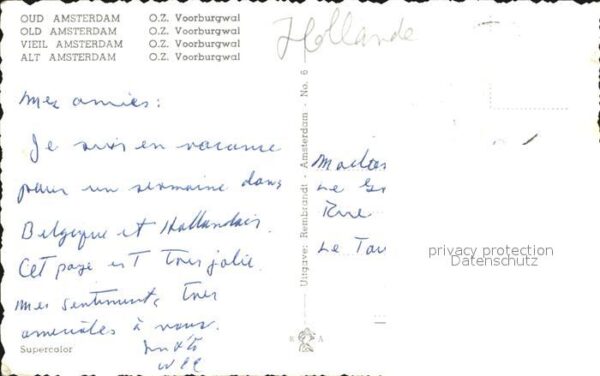 OUD AMSTERDAM O.Z. Voorburgwal
OLD AMSTERDAM O.Z. Voorburgwal
VIEIL AMSTERDAM O.Z. Voorburgwal
ALT AMSTERDAM O.Z. Voorburgwal
Hollande
Mes amies:
Je suis en vacance
pour un semaine dans
Belgique et Hollandais.
Cet page est tres jolie.
Mes sentiments tres
amicales à vous.
Supercolor
Uitgave: Rembrandt - Amsterdam - No. 6
Madas
Le
Rue
Le Tou
R A
privacy protection
Datenschutz